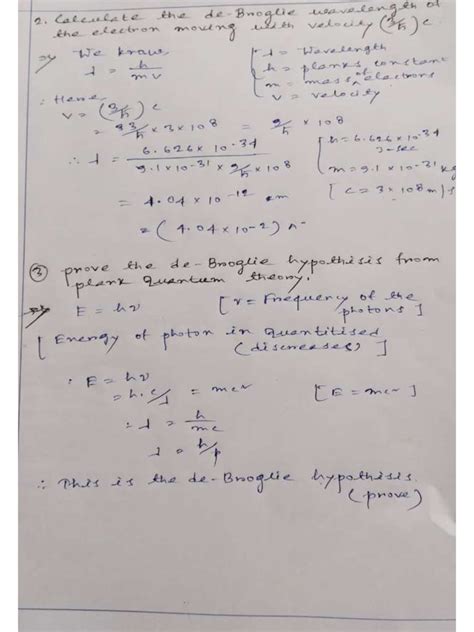 2. Calculate the de-Broglie wavelength of
the electron moving with velocity (3/5) c
=> We know
λ = h/mv
[λ = Wavelength
h = planks constant
m = mass of electrons
v = velocity
∴ Here,
v = (3/5) c
= 3/5 × 3 × 10^8 = 9/5 × 10^8
∴ λ = 6.626 × 10^-34 / 9.1 × 10^-31 × 9/5 × 10^8
[h = 6.626 × 10^-34
J-sec
m = 9.1 × 10^-31 kg
[c = 3 × 10^8 m/s
= 4.04 × 10^-12 m
= (4.04 × 10^-2)
③ prove the de-Broglie hypothisis from
plank quantum theory.
=> E = hν [ν = Frequency of the
photons]
[Energy of photon in quantitised
(discreases)]
∴ E = hν
= h.c/λ = mc² [E = mc²]
∴ λ = h/mc
λ = h/p
∴ This is the de-Broglie hypothisis.
(prove)